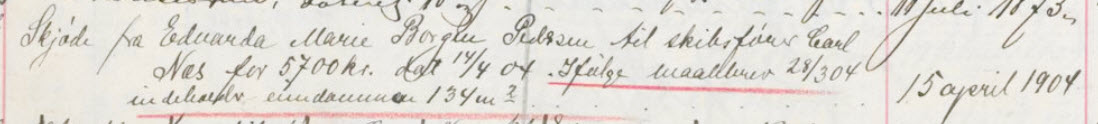 11 Juli 1873.
Skjøde fra Edvarda Marie Borgen Pedersen til skibsfører Carl
Næs for 5700 kr. dat 14/4 04. Ifølge maalebrev 28/3 04
indeholder eiendommen 134 m²
15 april 1904